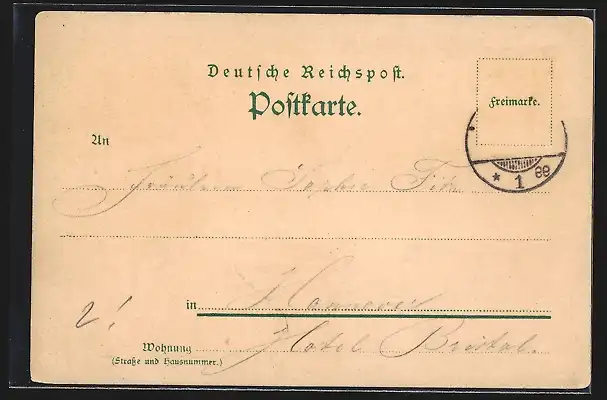 Deutsche Reichspost.
Postkarte.
Freimarke.
An
* 1 88
Fräulein Sophie
in Hannover
2!
Wohnung Hotel Bristol.
(Straße und Hausnummer.)